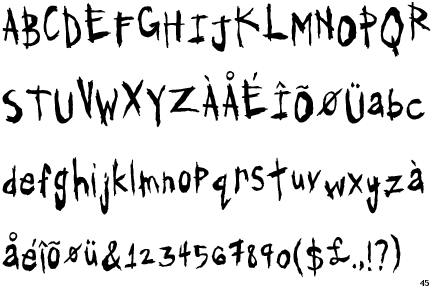 ABCDEFGHIJKLMNOPQR
STUVWXYZÀÅÉÎÕØÜabc
defghijklmnopqrstuvwxyzà
åéîõøü&1234567890($£.,!?)
45